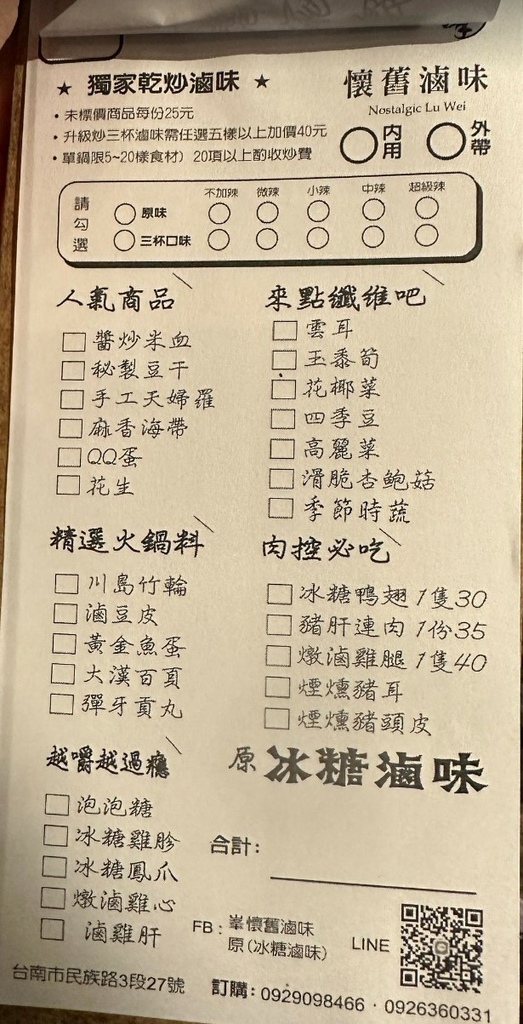 ★ 獨家乾炒滷味 ★
懷舊滷味
Nostalgic Lu Wei
• 未標價商品每份25元
• 升級炒三杯滷味需任選五樣以上加價40元
• 單鍋限5~20樣食材）20項以上酌收炒費
內用
外帶
請勾選
不加辣 微辣 小辣 中辣 超級辣
原味
三杯口味
人氣商品
醬炒米血
秘製豆干
手工天婦羅
麻香海帶
QQ蛋
花生
來點纖維吧
雲耳
玉黍筍
花椰菜
四季豆
高麗菜
滑脆杏鮑菇
季節時蔬
精選火鍋料
川島竹輪
滷豆皮
黃金魚蛋
大漢百頁
彈牙貢丸
肉控必吃
冰糖鴨翅1隻30
豬肝連肉1份35
燉滷雞腿1隻40
煙燻豬耳
煙燻豬頭皮
越嚼越過癮
泡泡糖
冰糖雞胗
冰糖鳳爪
燉滷雞心
滷雞肝
原 冰糖滷味
合計：
FB：峯懷舊滷味
原(冰糖滷味)
LINE
台南市民族路3段27號
訂購：0929098466 · 0926360331